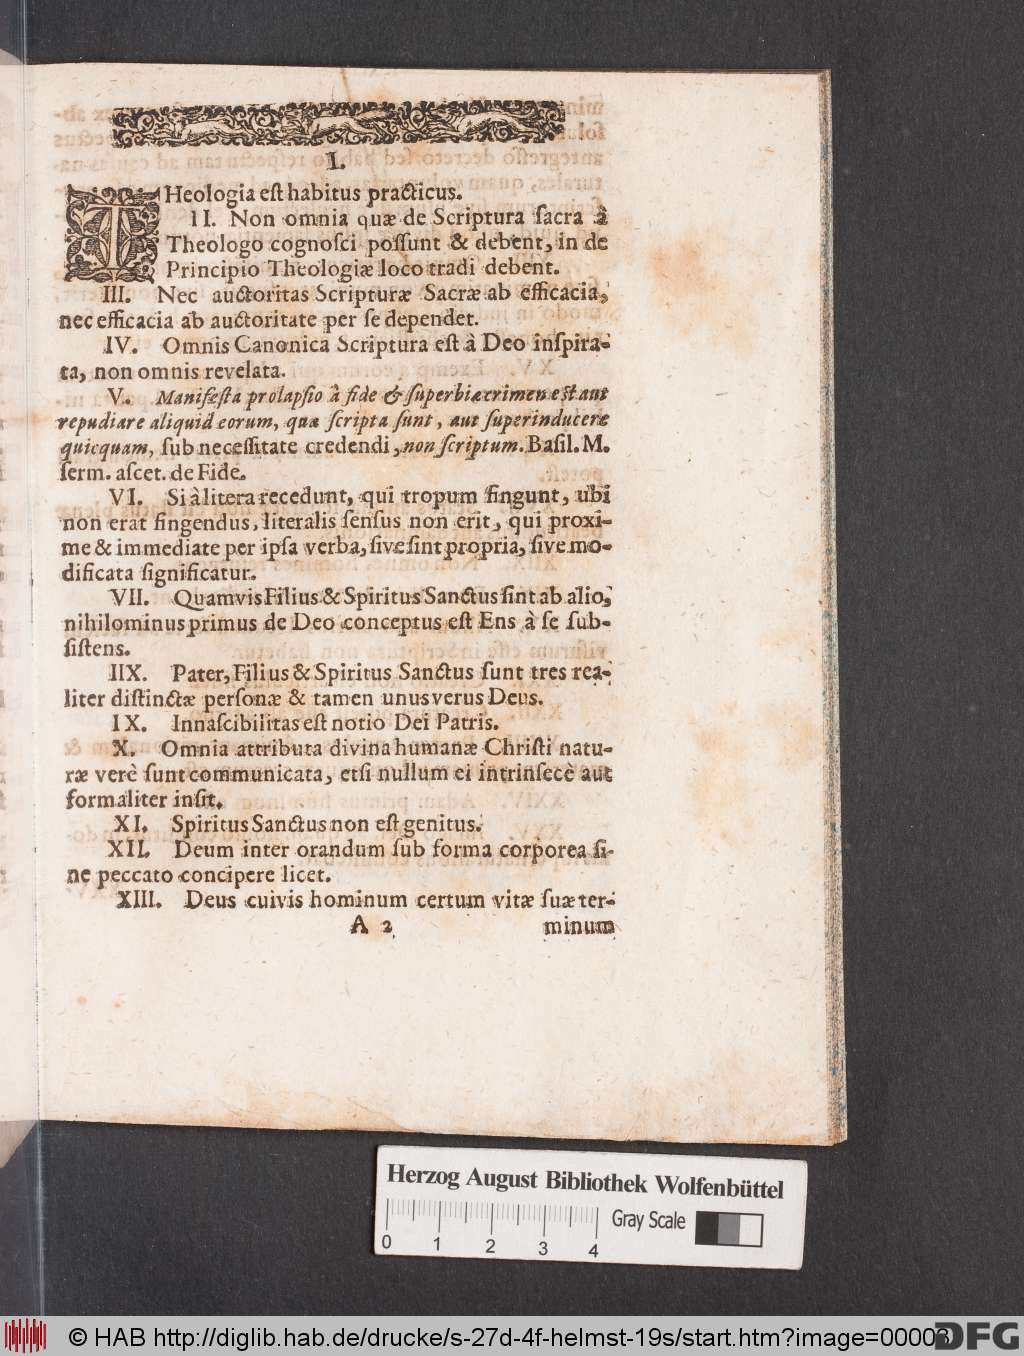 I.
THeologia est habitus practicus.
II. Non omnia quæ de Scriptura sacra à
Theologo cognosci possunt & debent, in de
Principio Theologiæ loco tradi debent.
III. Nec auctoritas Scripturæ Sacræ ab efficacia,
nec efficacia ab auctoritate per se dependet.
IV. Omnis Canonica Scriptura est à Deo inspira-
ta, non omnis revelata.
V. Manifesta prolapsio à fide & superbiæ crimen est aut
repudiare aliquid eorum, quæ scripta sunt, aut superinducere
quicquam, sub necessitate credendi, non scriptum. Basil. M.
serm. ascet. de Fide.
VI. Si à litera recedunt, qui tropum fingunt, ubi
non erat fingendus, literalis sensus non erit, qui proxi-
me & immediate per ipsa verba, sive sint propria, sive mo-
dificata significatur.
VII. Quamvis Filius & Spiritus Sanctus sint ab alio,
nihilominus primus de Deo conceptus est Ens à se sub-
sistens.
IIX. Pater, Filius & Spiritus Sanctus sunt tres rea-
liter distinctæ personæ & tamen unus verus Deus.
IX. Innascibilitas est notio Dei Patris.
X. Omnia attributa divina humanæ Christi natu-
ræ verè sunt communicata, etsi nullum ei intrinsecè aut
formaliter insit.
XI. Spiritus Sanctus non est genitus.
XII. Deum inter orandum sub forma corporea si-
ne peccato concipere licet.
XIII. Deus cuivis hominum certum vitæ suæ ter-
A 2 minum
Herzog August Bibliothek Wolfenbüttel
Gray Scale
0 1 2 3 4
© HAB http://diglib.hab.de/drucke/s-27d-4f-helmst-19s/start.htm?image=00003
DFG